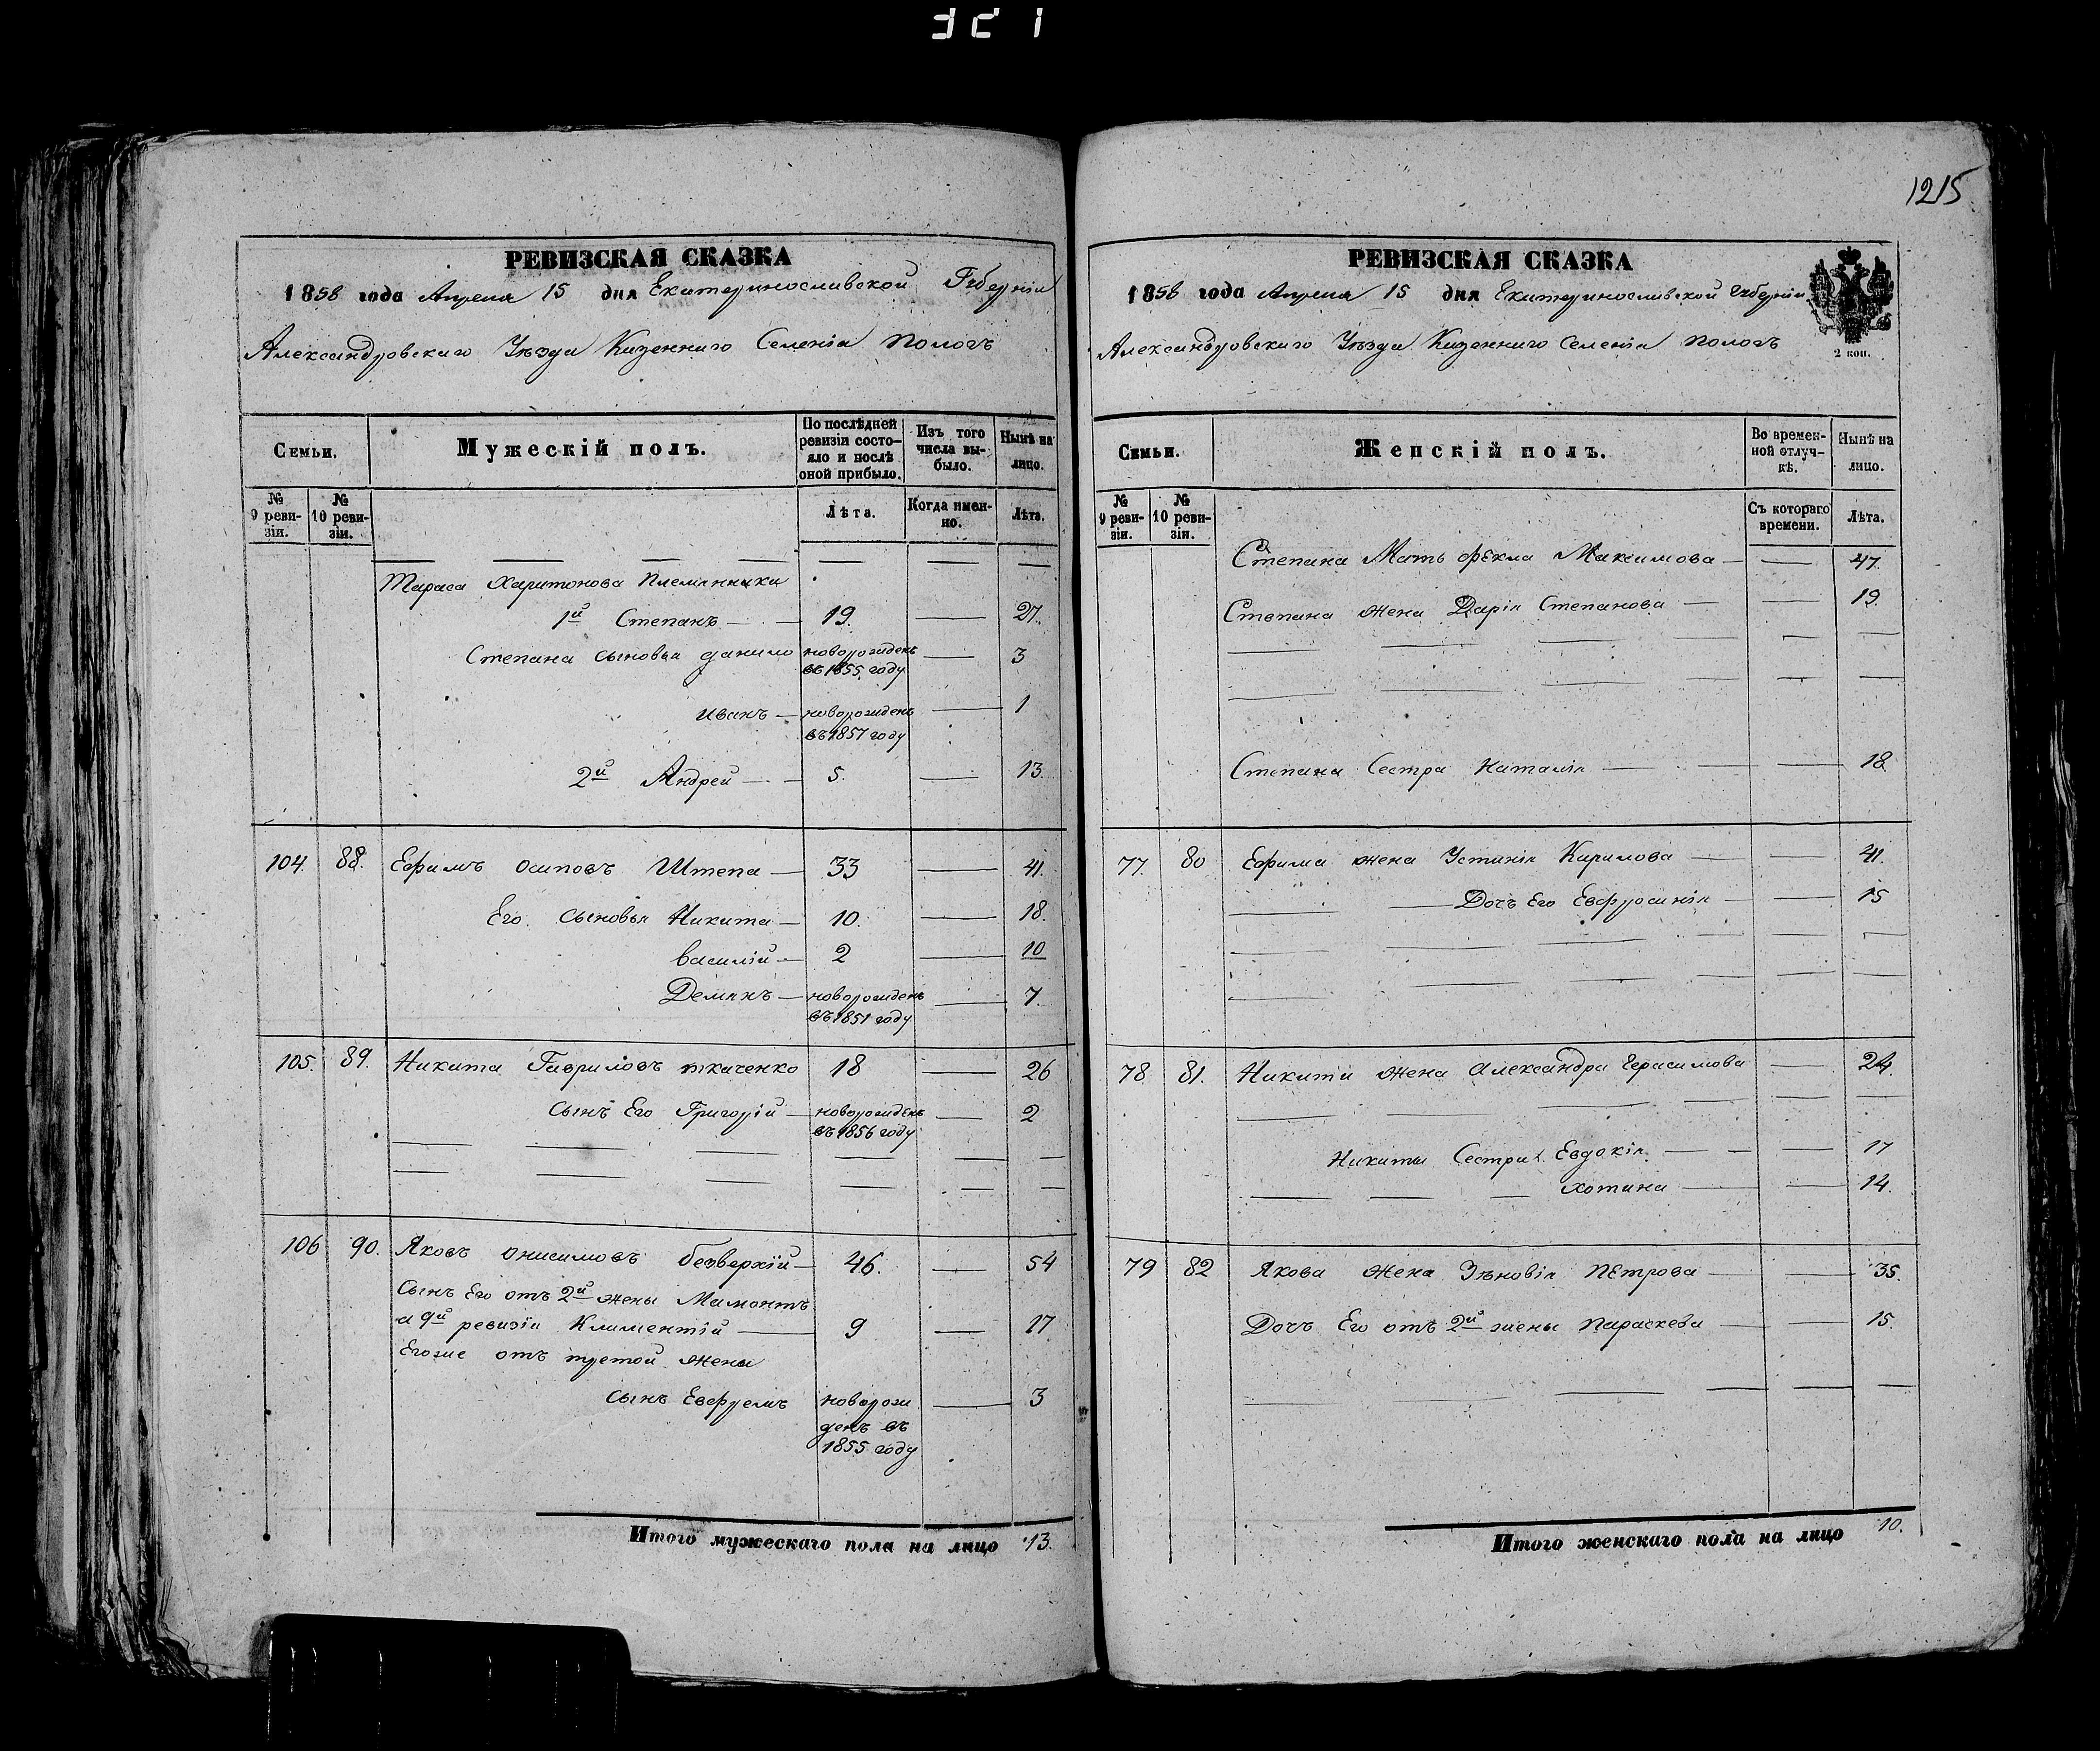 321
1215
РЕВИЗСКАЯ СКАЗКА
1858 года Апреля 15 дня Екатеринославской Губерніи
Александровскаго Уѣзда Казеннаго Селенія Пологъ
Семьи.
Мужескій полъ.
По послѣдней ревизіи состояло и послѣ оной прибыло.
Изъ того числа выбыло.
Нынѣ на лицо.
№ 9 ревизіи.
№ 10 ревизіи.
Лѣта.
Когда именно.
Лѣта.
Тараса Харитонова Племянники
1й Степанъ — 19. — 27.
Степана сыновья данило новорожденъ въ 1855 году — 3
Иванъ — новорожденъ въ 1857 году — 1
2й Андрей — 5. — 13.
104. 88. Ефимъ Осиповъ Штепа — 33 — 41.
Его сыновья Никита — 10. — 18.
Василій — 2 — 10
Демянъ — новорожденъ въ 1851 году — 7.
105. 89. Никита Гавриловъ ткаченко 18 — 26
Сынъ Его Григорій — новорожденъ въ 1856 году — 2
106 90. Яковъ Онисимовъ безверхій — 46. — 54
Сынъ Его отъ 2й жены Мамонтъ
а 9й ревизіи Климентій — 9 — 17
Егоже отъ третой жены
сынъ Евфремъ новорожденъ въ 1855 году — 3
Итого мужескаго пола на лицо 13.
РЕВИЗСКАЯ СКАЗКА
1858 года Апреля 15 дня Екатеринославской Губерніи
Александровскаго Уѣзда Казеннаго Селенія Пологъ
2 коп.
Семьи.
Женскій полъ.
Во временной отлучкѣ.
Нынѣ на лицо.
№ 9 ревизіи.
№ 10 ревизіи.
Съ котораго времени.
Лѣта.
Степана Мать Фекла Максимова — 47.
Степана жена Дарія Степанова — 19.
Степана Сестра Наталія — 18
77. 80 Ефима жена Устинія Кирилова — 41.
Дочъ Его Евфросинія — 15
78. 81. Никиты жена Александра Герасимова — 24.
Никиты Сестры 1. Евдокія — 17
Хотина — 14.
79 82 Якова жена Зѣновія Петрова — 35.
Дочъ Его отъ 2й жены Параскева — 15.
Итого женскаго пола на лицо 10.